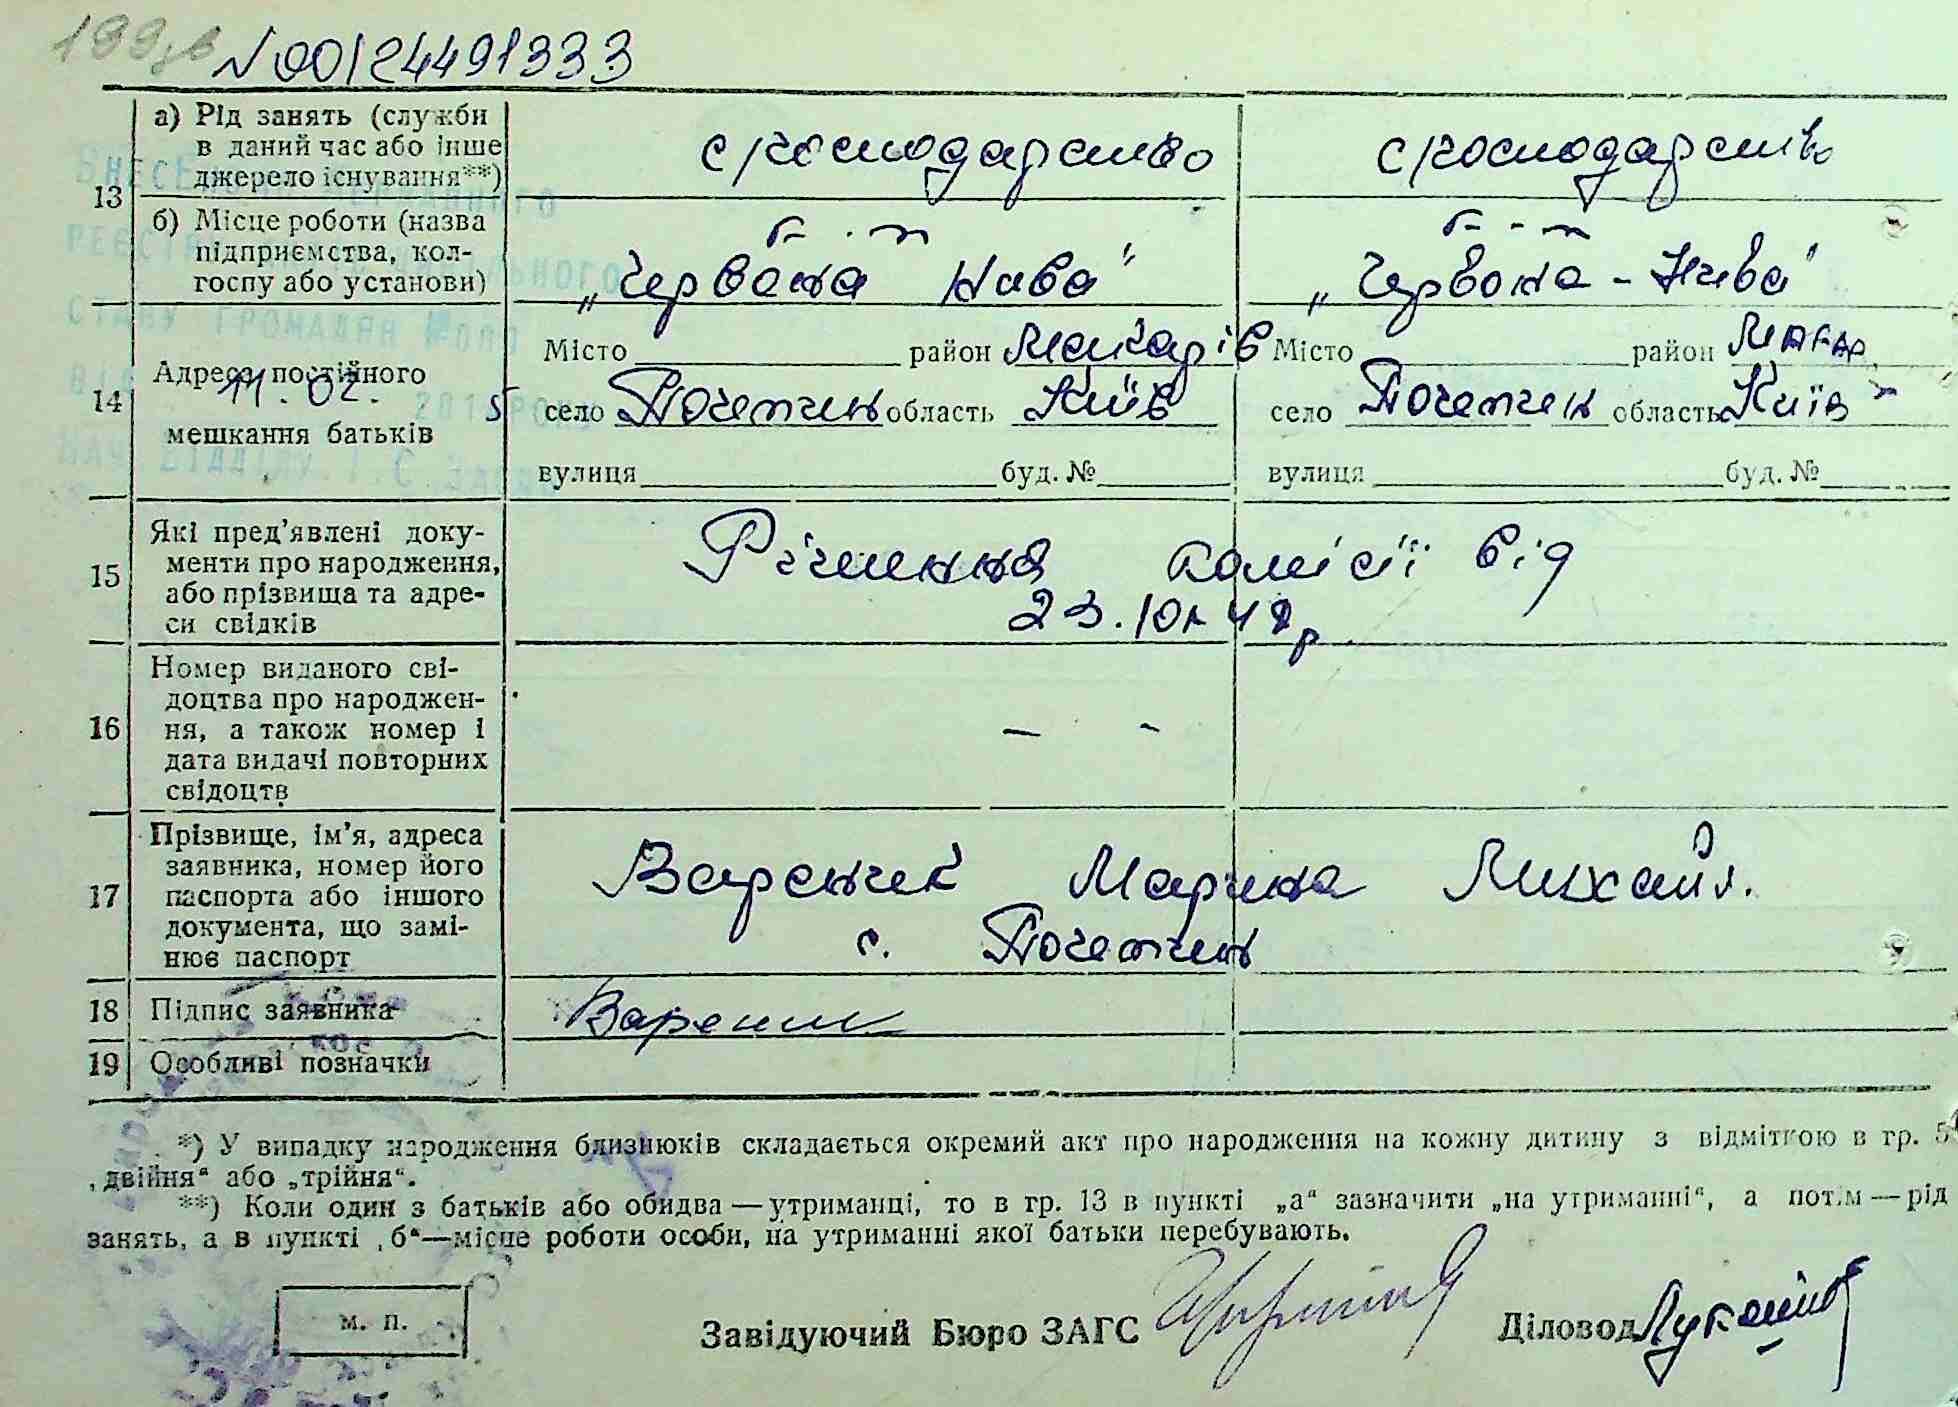 N00124491333
а) Рід занять (служби в даний час або інше джерело існування**)
с/господарство
с/господарство
13
б) Місце роботи (назва підприємства, колгоспу або установи)
к-г-п
к-г-п
„Червона Нива"
„Червона-Нива"
14
Адреса постійного мешкання батьків
11.02. 5
Місто район Макарів
Місто район Макар.
село Почепин область Київ
село Почепин область Київ
вулиця буд. №
вулиця буд. №
ВНЕСЕНО ДО ДЕРЖАВНОГО
РЕЄСТРУ АКТІВ ЦИВІЛЬНОГО
СТАНУ ГРОМАДЯН
ВІД 201 РОКУ
НАЧ. ВІДДІЛУ І. С.
15
Які пред’явлені документи про народження, або прізвища та адреси свідків
Рішення комісії від
23.10.48р
16
Номер виданого свідоцтва про народження, а також номер і дата видачі повторних свідоцтв
— -
17
Прізвище, ім’я, адреса заявника, номер його паспорта або іншого документа, що замінює паспорт
Вареник Марина Михайл.
с. Почепин
18 Підпис заявника
Вареник
19 Особливі позначки
*) У випадку народження близнюків складається окремий акт про народження на кожну дитину з відміткою в гр. 5
„двійня“ або „трійня“.
**) Коли один з батьків або обидва — утриманці, то в гр. 13 в пункті „а“ зазначити „на утриманні“, а потім — рід
занять, а в пункті „б“—місце роботи особи, на утриманні якої батьки перебувають.
м. п.
Завідуючий Бюро ЗАГС
Діловод